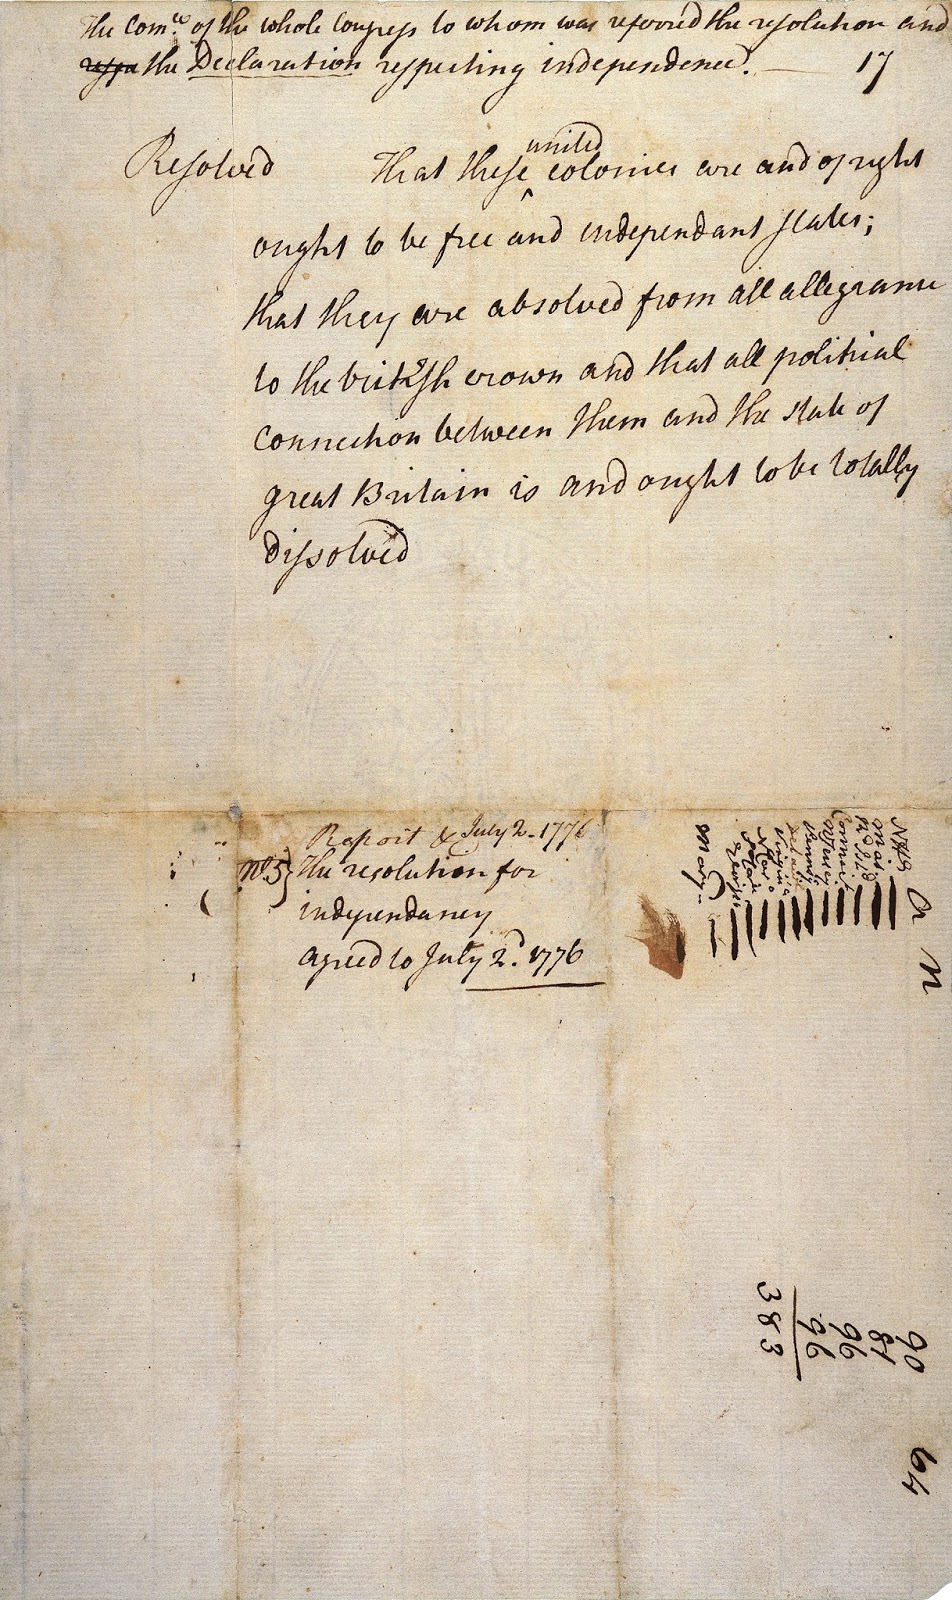 The Com.ee of the whole Congress to whom was referred the resolution and
the Declaration respecting independence. — 17
Resolved That these united colonies are and of right
ought to be free and independant states;
that they are absolved from all allegiance
to the british crown and that all political
connection between them and the state of
great Britain is and ought to be totally
dissolved
Report & July 2. 1776
No. 5} The resolution for
independancy
agreed to July 2d. 1776
R I
Connect
Virginia
Mary
N
90
81
96
96
383
64